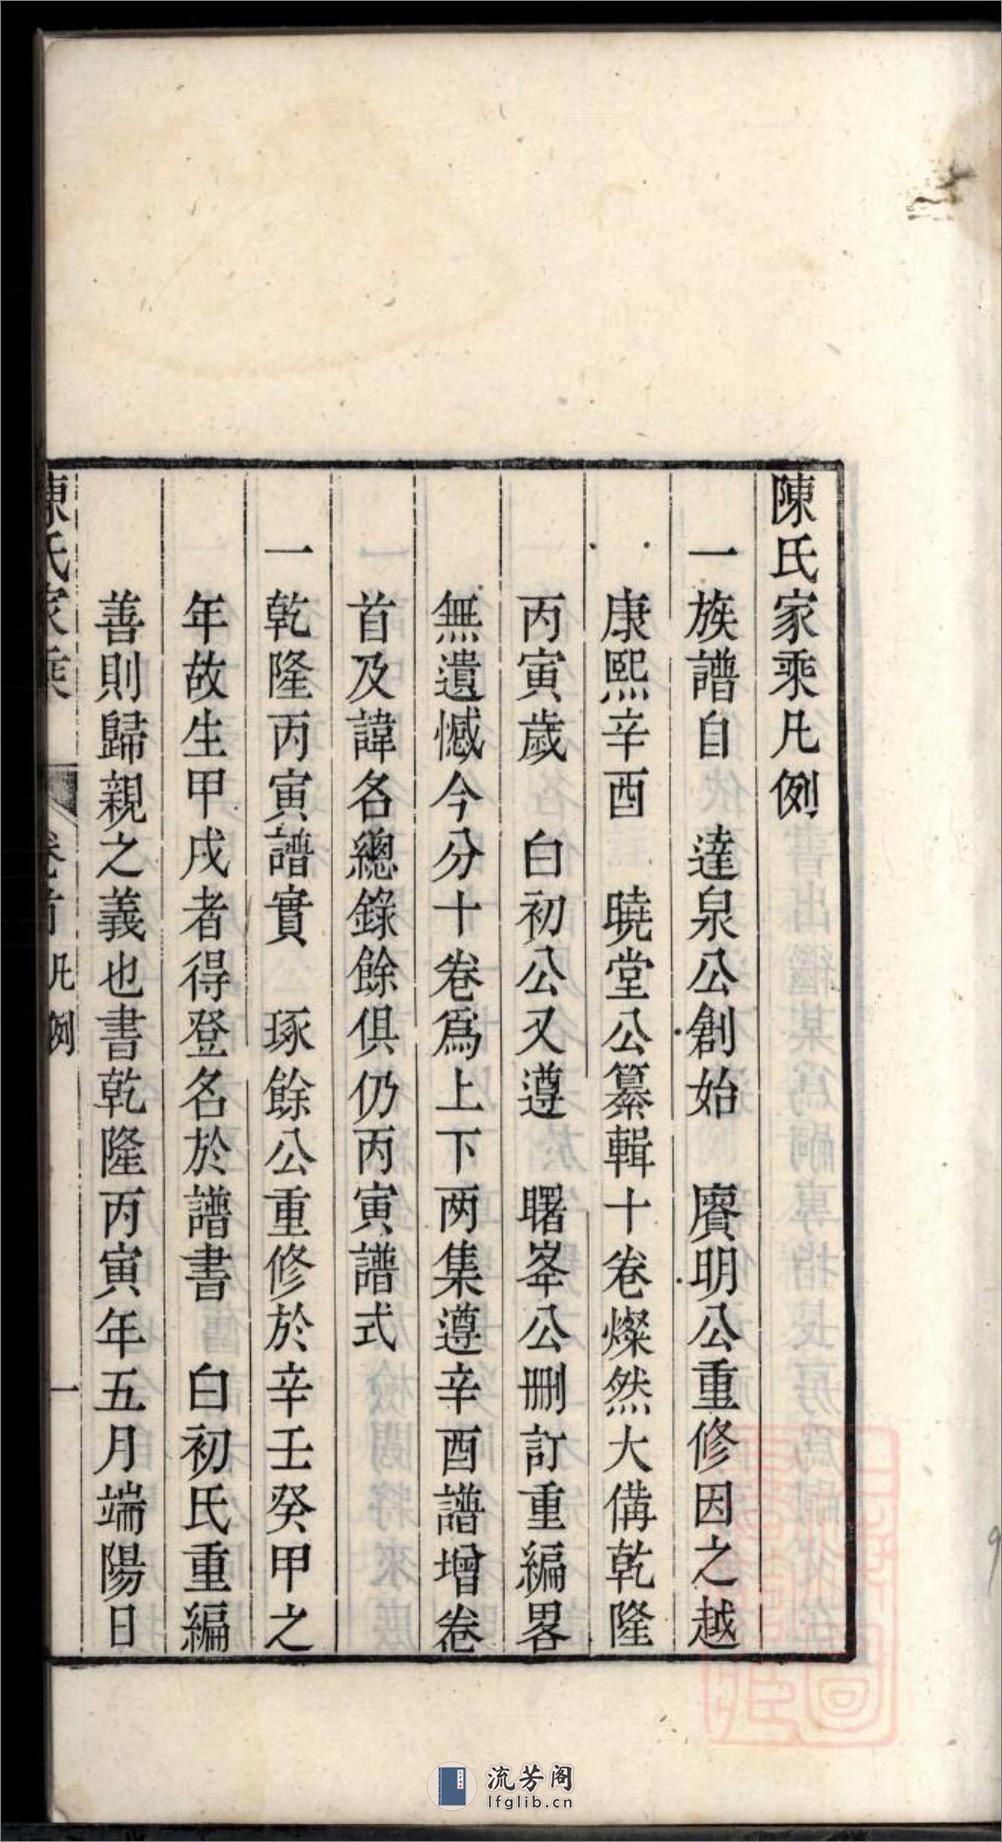 陳氏家乘凡例
一族譜自 達泉公創始 賡明公重修因之越
康熙辛酉 曉堂公纂輯十卷燦然大備乾隆
丙寅歲 白初公又遵 曙峯公刪訂重編畧
無遺憾今分十卷爲上下两集遵辛酉譜增卷
首及諱名總錄餘俱仍丙寅譜式
一乾隆丙寅譜實 琢餘公重修於辛壬癸甲之
年故生甲戌者得登名於譜書 白初氏重編
善則歸親之義也書乾隆丙寅年五月端陽日
陳氏家乘 卷首 凡例 一
流芳阁
lfglib.cn